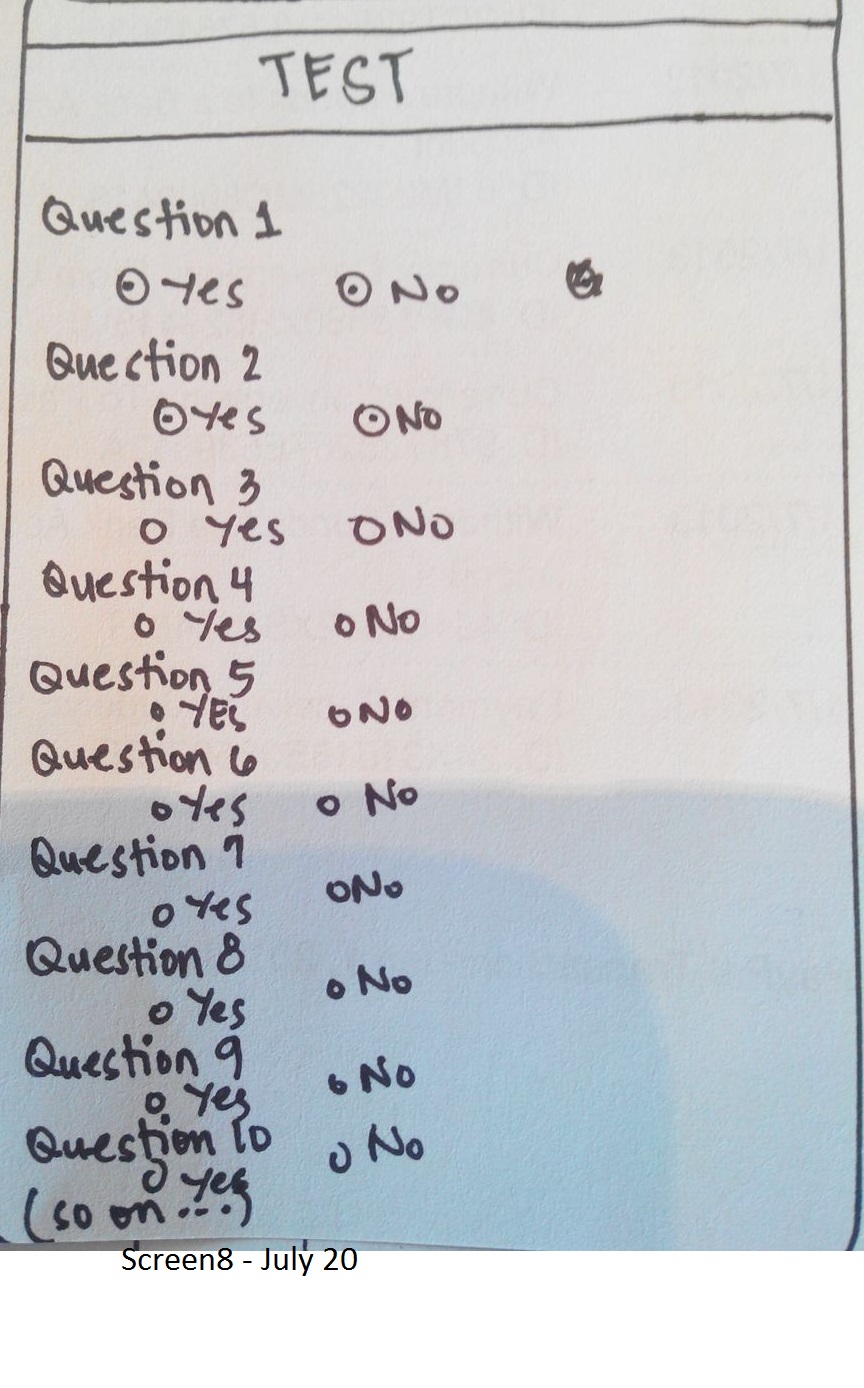 TEST
Question 1
Yes No
Question 2
Yes No
Question 3
Yes No
Question 4
Yes No
Question 5
YES No
Question 6
Yes No
Question 7
Yes No
Question 8
Yes No
Question 9
Yes No
Question 10
Yes No
(so on ...)
Screen8 - July 20